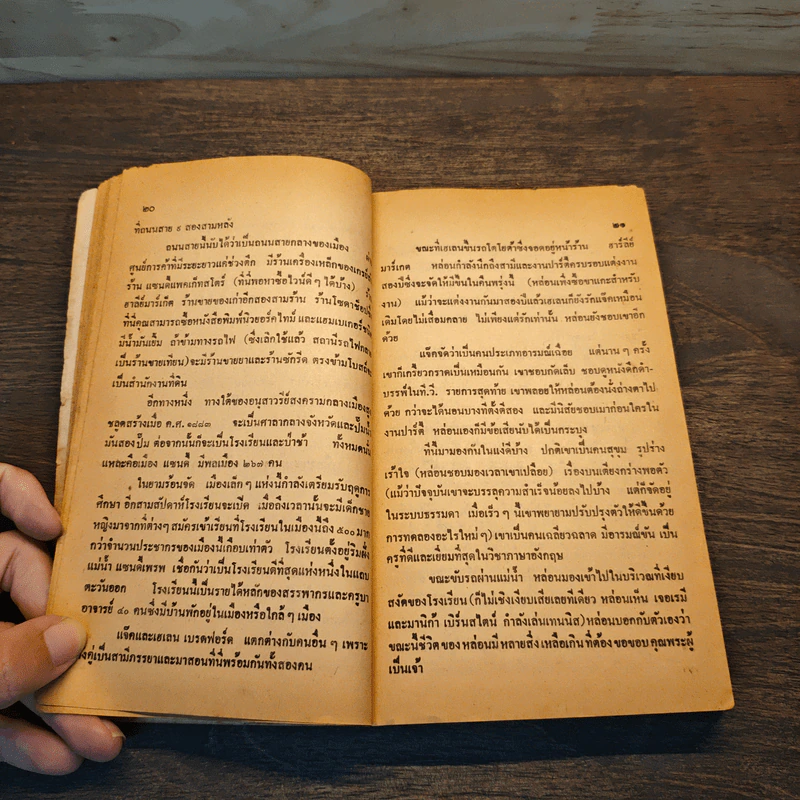 ๒๐
ที่ถนนสาย ๙ สองสามหลัง
ถนนสายนี้นับได้ว่าเป็นถนนสายกลางของเมือง
ศูนย์การค้าที่มีระยะยาวแค่ช่วงตึก มีร้านเครื่องเหล็กของเกอร์
ร้าน แซนดี้แพคเก็ทสโตร์ (ที่นี่พอหาซื้อไวน์ดี ๆ ได้บ้าง)
ฮาลีย์มาร์เก็ต ร้านขายของเก่าอีกสองสามร้าน ร้านโซดาช็อป
ที่นี่คุณสามารถซื้อหนังสือพิมพ์นิวยอร์คไทม์ และแฮมเบเกอร์
มีน้ำมันเยิ้ม ถ้าข้ามทางรถไฟ (ซึ่งเลิกใช้แล้ว สถานีรถไฟกลาย
เป็นร้านขายเทียน) จะมีร้านขายยาและร้านซักรีด ตรงข้ามโบสถ์
เป็นสำนักงานที่ดิน
อีกทางหนึ่ง ทางใต้ของอนุสาวรีย์สงครามกลางเมือง
ชลูดสร้างเมื่อ ค.ศ. ๑๘๘๓ จะเป็นศาลากลางจังหวัดและปั๊มน้ำ
มันสองปั๊ม ต่อจากนั้นก็จะเป็นโรงเรียนและป่าช้า ทั้งหมดนั้น
แหละคือเมือง แซนดี้ มีพลเมือง ๒๖๗ คน
ในยามร้อนจัด เมืองเล็ก ๆ แห่งนี้กำลังเตรียมรับฤดูการ
ศึกษา อีกสามสัปดาห์โรงเรียนจะเปิด เมื่อถึงเวลานั้นจะมีเด็กชาย
หญิงมาจากที่ต่างๆ สมัครเข้าเรียนที่โรงเรียนในเมืองนี้ถึง ๕๐๐ มาก
กว่าจำนวนประชากรของเมืองนี้เกือบเท่าตัว โรงเรียนตั้งอยู่ริมฝั่ง
แม่น้ำ แซนดี้เพรพ เชื่อกันว่าเป็นโรงเรียนดีที่สุดแห่งหนึ่งในแถบ
ตะวันออก โรงเรียนนี้เป็นรายได้หลักของสรรพากรและครูบา
อาจารย์ ๔๐ คนซึ่งมีบ้านพักอยู่ในเมืองหรือใกล้ ๆ เมือง
แจ๊คและเฮเลน เบรดฟอร์ด แตกต่างกับคนอื่น ๆ เพราะ
คู่เป็นสามีภรรยาและมาสอนที่นี่พร้อมกันทั้งสองคน
๒๑
ขณะที่เฮเลนขึ้นรถโตโยต้าซึ่งจอดอยู่หน้าร้าน ฮาร์ลีย์
มาร์เกต หล่อนกำลังนึกถึงสามีและงานปาร์ตี้ครบรอบแต่งงาน
สองปีซึ่งจะจัดให้มีขึ้นในคืนพรุ่งนี้ (หล่อนเพิ่งซื้อขาแกะสำหรับ
งาน) แม้ว่าจะแต่งงานกันมาสองปีแล้วเฮเลนก็ยังรักแจ๊คเหมือน
เดิมโดยไม่เสื่อมคลาย ไม่เพียงแต่รักเท่านั้น หล่อนยังชอบเขาอีก
ด้วย
แจ๊คจัดว่าเป็นคนประเภทอารมณ์เฉื่อย แต่นาน ๆ ครั้ง
เขาก็เกรี้ยวกราดเป็นเหมือนกัน เขาชอบกัดเล็บ ชอบดูหนังดึกดำ-
บรรพ์ในที.วี. รายการสุดท้าย เขาพลอยให้หล่อนต้องนั่งถ่างตาไป
ด้วย กว่าจะได้นอนบางทีตั้งตีสอง และมีนิสัยชอบเมาก่อนใครใน
งานปาร์ตี้ หล่อนเองก็มีข้อเสียนับได้เป็นกระบุง
ทีนี้มามองกันในแง่ดีบ้าง ปกติเขาเป็นคนสุขุม รูปร่าง
เร้าใจ (หล่อนชอบมองเวลาเขาเปลือย) เรื่องบนเตียงกว่างพอตัว
(แม้ว่าปัจจุบันเขาจะบรรลุความสำเร็จน้อยลงไปบ้าง แต่ก็จัดอยู่
ในระบบธรรมดา เมื่อเร็ว ๆ นี้เขาพยายามปรับปรุงตัวให้ดีขึ้นด้วย
การทดลองอะไรใหม่ ๆ) เขาเป็นคนเฉลียวฉลาด มีอารมณ์ขัน เป็น
ครูที่ดีและเยี่ยมที่สุดในวิชาภาษาอังกฤษ
ขณะขับรถผ่านแม่น้ำ หล่อนมองเข้าไปในบริเวณที่เงียบ
สงัดของโรงเรียน (ก็ไม่เชิงเงียบเสียเลยทีเดียว หล่อนเห็น เจอเรมี
และมานิก้า เบิร์นสไตน์ กำลังเล่นเทนนิส) หล่อนบอกกับตัวเองว่า
ขณะนี้ชีวิต ของ หล่อนมี หลายสิ่ง เหลือเกิน ที่ต้อง ขอขอบ คุณพระผู้
เป็นเจ้า